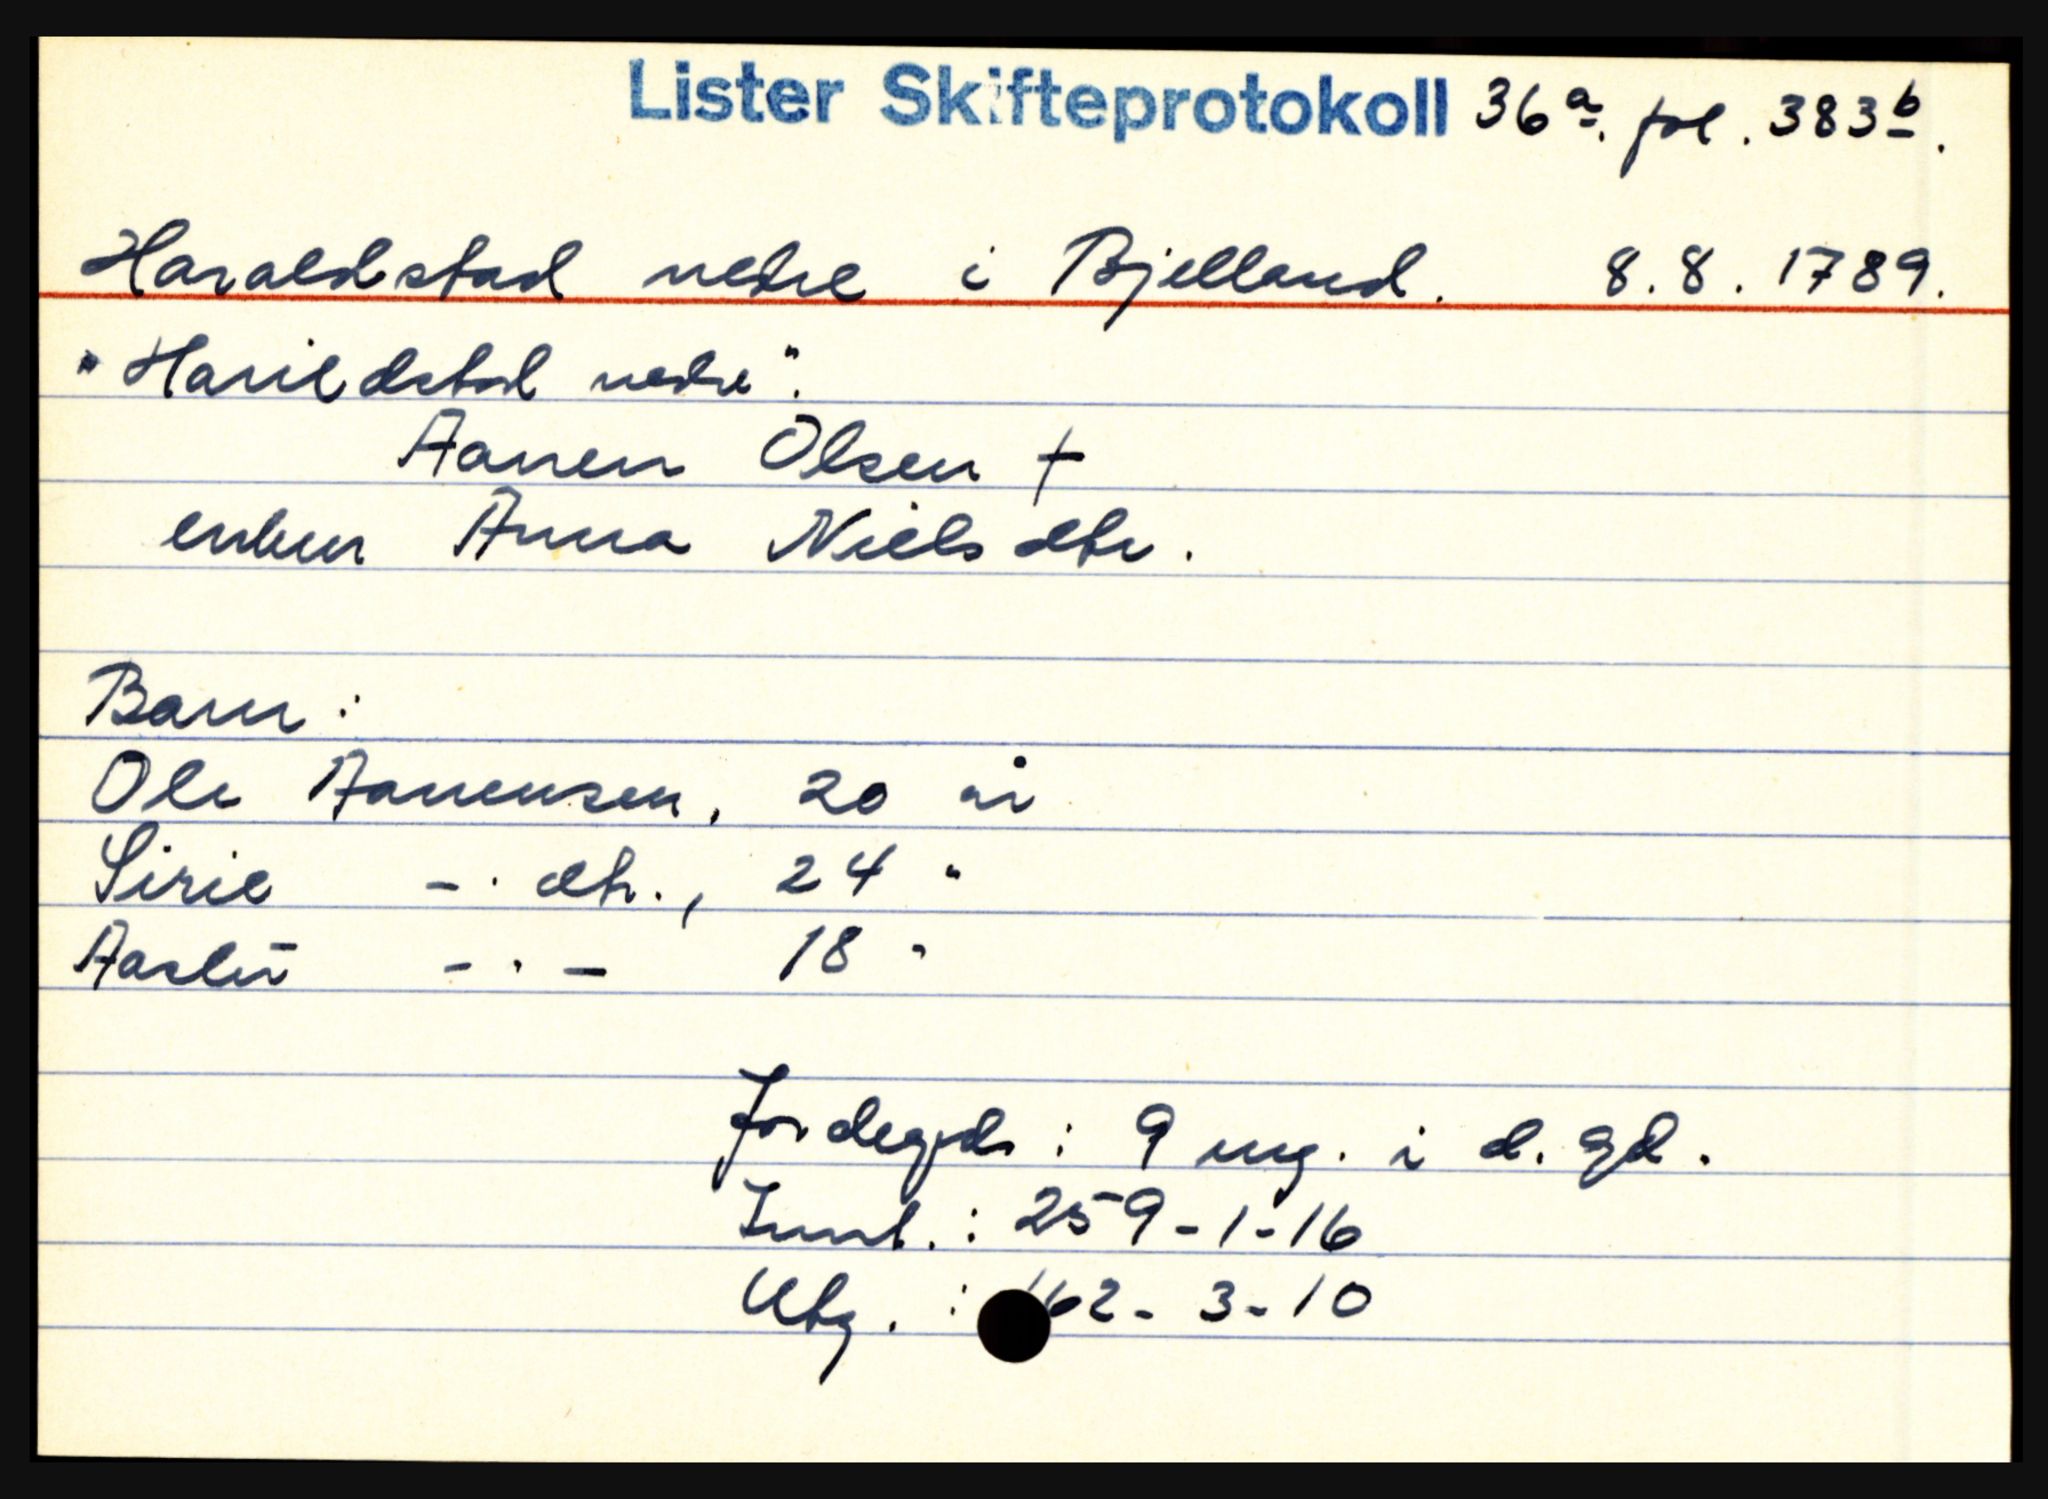 Lister Skifteprotokoll 36a. fol. 383b.
Haraldstad nedre i Bjelland. 8.8.1789.
"Harildstad nedre".
Aanen Olsen †
enken Anna Nielsdtr.
Barn:
Ole Aanensen, 20 år
Sirie -"- dtr., 24 "
Aasler -"- 18 "
Jordegds: 9 mg. i d. gd.
Innt.: 259-1-16
Utg.: 162-3-10